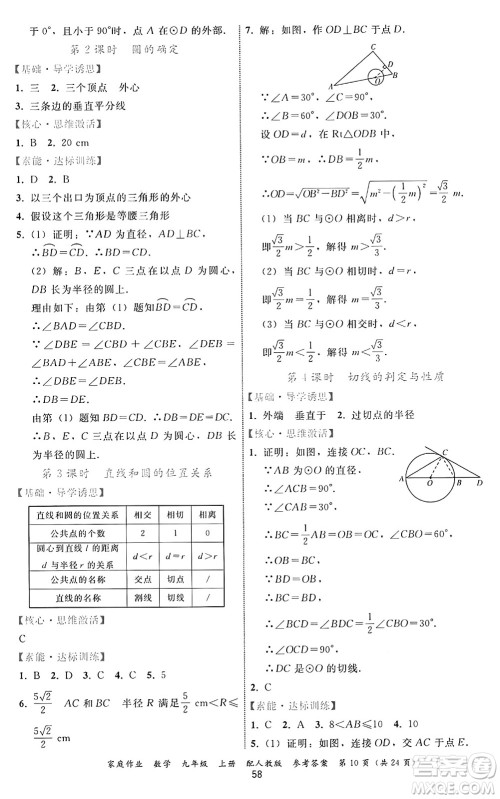 于 0°，且小于 90°，所以点 D 在圆的外部.
第 2 课时 圆的确定
【基础·导学诱思】
1. 三 2. 三个顶点 外心
3. 三条边的垂直平分线
【核心·思维激活】
1. B 2. 20 cm
【素能·达标训练】
1. D 2. B
3. 以三个出口为顶点的三角形的外心
4. 假设这个三角形是等腰三角形
5.（1）证明：∵AD 为直径，AD⊥BC，
∴BD=CD. ∴BD=CD.
（2）解：B，E，C 三点在以 D 为圆心，以 DB 为半径的圆上.
理由如下：由（1）题知 BD=CD，
∴∠BAD=∠CBD.
又∵BE 平分∠ABC，∴∠CBE=∠ABE.
∵∠DBE=∠CBD+∠CBE，∠DEB=∠BAD+∠ABE，
∴∠DBE=∠DEB. ∴DB=DE.
由第（1）题知 BD=CD，
∴DB=DE=DC. ∴B，E，C 三点在以 D 为圆心，以 DB 为半径的圆上.
第 3 课时 直线和圆的位置关系
【基础·导学诱思】
直线和圆的位置关系 相交 相切 相离
公共点的个数 2 1 0
圆心到直线 l 的距离 d 与半径 r 的关系 d<r d=r d>r
公共点的名称 交点 切点 /
直线的名称 割线 切线 /
【核心·思维激活】
C
【素能·达标训练】
1. B 2. D 3. C 4. C 5. C
6. 5√2/2 AC 和 BC 半径 R 满足 5/2 cm<R≤
5√2/2 cm
7. 解：如图，作 OD⊥AB，垂足为 D.
C
D
A
O
B
∵∠A=30°，∠C=90°，
∴∠B=60°.
设 OM=d，在 Rt△ODB 中，
∵∠B=60°，
∴BD=1/2 OB=1/2 m，
∴OD=√(OB²−BD²)=√(m²−(1/2 m)²)=√3/2 m.
（1）当 AB 与⊙O 相离时，d>r，
即 √3/2 m>√3/2，解得 m>1.
（2）当 AB 与⊙O 相切时，d=r，
即 √3/2 m=√3/2，解得 m=1.
（3）当 AB 与⊙O 相交时，d<r，
即 √3/2 m<√3/2，解得 0<m<1.
第 4 课时 切线的判定与性质
【基础·导学诱思】
1. 外端 垂直于 2. 过切点的半径
【核心·思维激活】
1. 证明：如图，连接 OC，BC.
∵AB 为⊙O 的直径，
∴∠ACB=90°.
∵∠A=30°，
∴BC=1/2 AB=OB.
∵BD=OB，
∴BC=OB=BD=1/2 OD，
∴∠OCD=90°.
∴DC 是⊙O 的切线.
A
O
B
D
C
2. C
【素能·达标训练】
1. C 2. A 3. 50 4. 60
5.（1）证明：如图，连接 OB.
家庭作业 数学 九年级 上册 配人教版 参考答案 第 10 页（共 24 页）
58